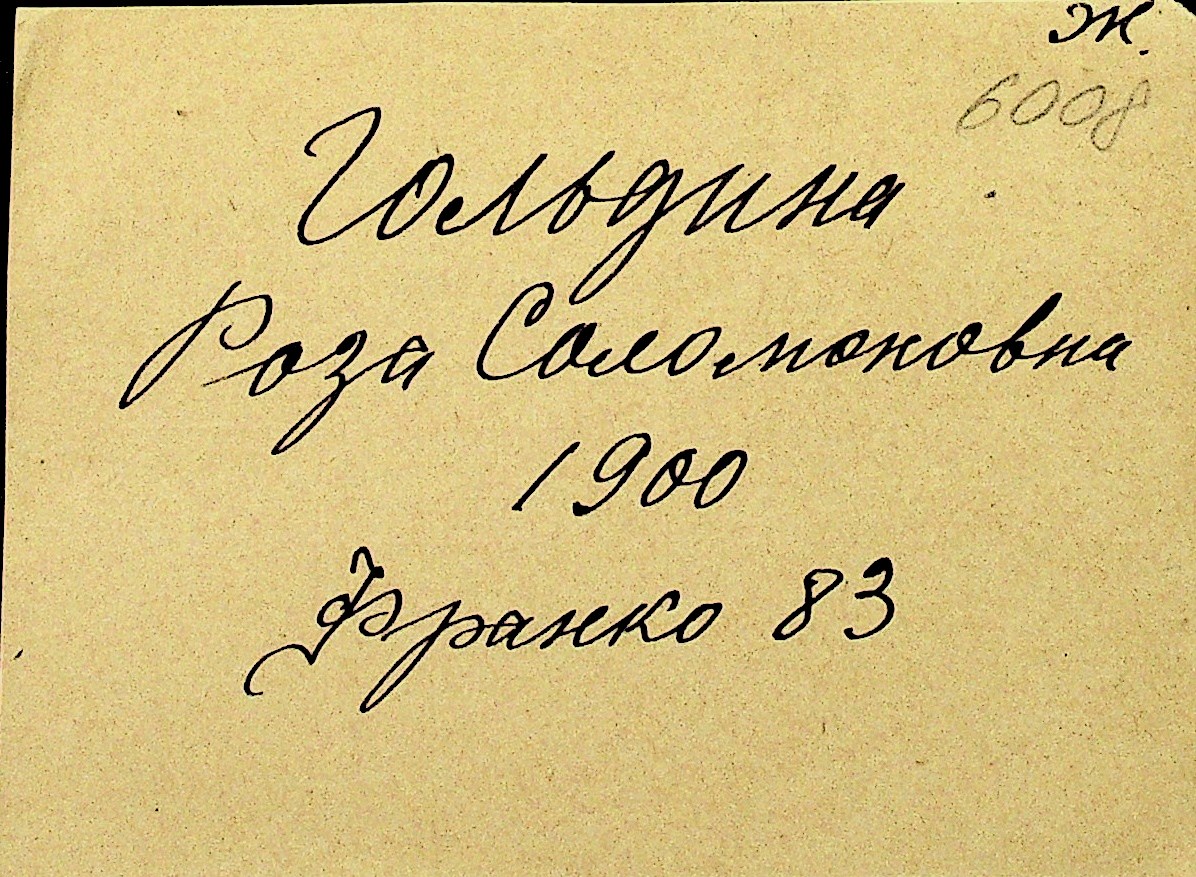 Ж.
6008
Гольдина
Роза Соломоновна
1900
Франко 83